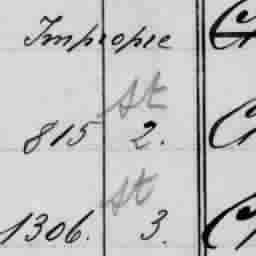 Impropie
st
815 2.
st
1306. 3.